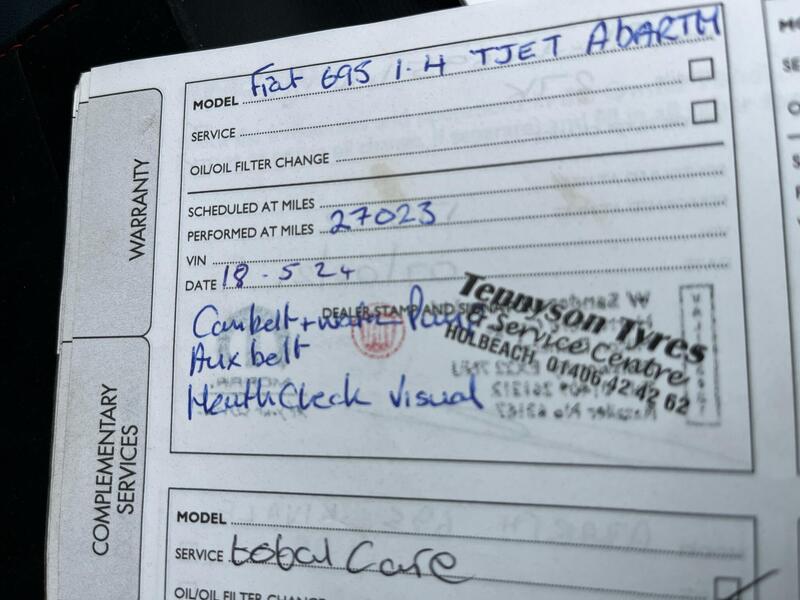 WARRANTY
COMPLEMENTARY
SERVICES
MODEL Fiat 695 1.4 TJET ABARTH
SERVICE
OIL/OIL FILTER CHANGE
SCHEDULED AT MILES
PERFORMED AT MILES 27023
VIN
DATE 18.5.24
DEALER STAMP AND
Cambelt + water Pump
Aux belt
Health Check Visual
Tennyson Tyres
& Service Centre
HOLBEACH, 01406 42 42 62
MODEL
SERVICE total Care
OIL/OIL FILTER CHANGE